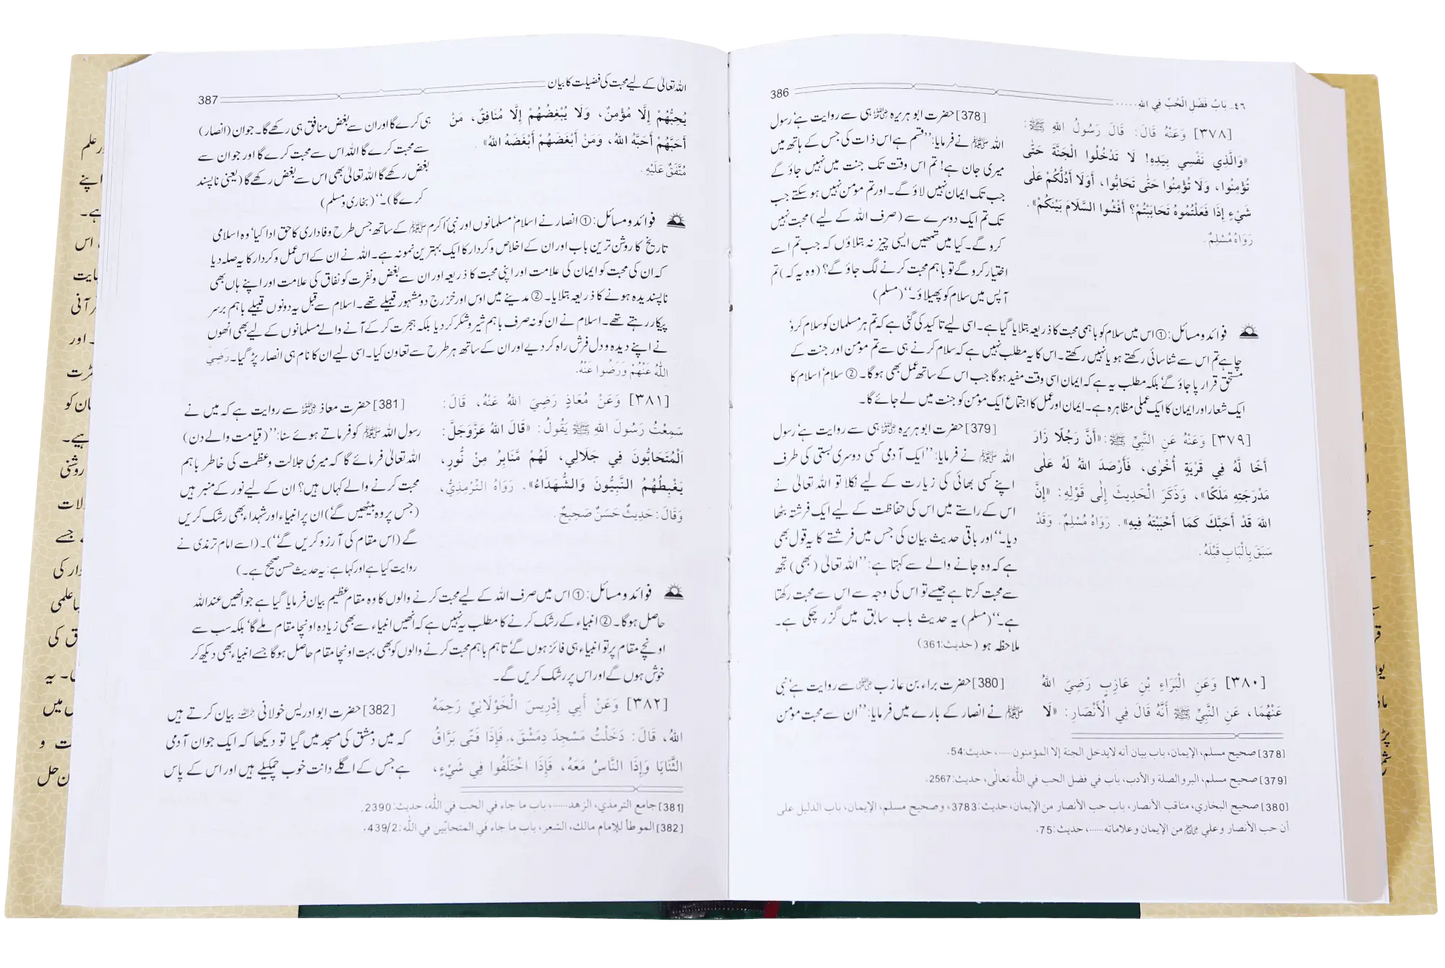 386
٤٦۔ بَابُ فَضْلِ الْحُبِّ فِي اللهِ .....
[٣٧٨] وَعَنْهُ قَالَ: قَالَ رَسُولُ اللهِ ﷺ:
«وَالَّذِي نَفْسِي بِيَدِهِ! لَا تَدْخُلُوا الْجَنَّةَ حَتَّى
تُؤْمِنُوا، وَلَا تُؤْمِنُوا حَتَّى تَحَابُّوا، أَوَلَا أَدُلُّكُمْ عَلَى
شَيْءٍ إِذَا فَعَلْتُمُوهُ تَحَابَبْتُمْ؟ أَفْشُوا السَّلَامَ بَيْنَكُمْ».
رَوَاهُ مُسْلِمٌ.
[378] حضرت ابو ہریرہ ؓ ہی سے روایت ہے رسول
اللہ ﷺ نے فرمایا: ’’قسم ہے اس ذات کی جس کے ہاتھ میں
میری جان ہے! تم اس وقت تک جنت میں نہیں جاؤ گے
جب تک ایمان نہیں لاؤ گے۔ اور تم مومن نہیں ہو سکتے جب
تک تم ایک دوسرے سے (صرف اللہ کے لیے) محبت نہیں
کرو گے۔ کیا میں تمھیں ایسی چیز نہ بتلاؤں کہ جب تم اسے
اختیار کرو گے تو باہم محبت کرنے لگ جاؤ گے؟ (وہ یہ کہ) تم
آپس میں سلام کو پھیلاؤ۔‘‘ (مسلم)
فوائد و مسائل: ① اس میں سلام کو باہمی محبت کا ذریعہ بتلایا گیا ہے۔ اسی لیے تاکید کی گئی ہے کہ تم ہر مسلمان کو سلام کرو
چاہے تم اس سے شناسائی رکھتے ہو یا نہیں رکھتے۔ اس کا یہ مطلب نہیں ہے کہ سلام کرنے ہی سے تم مومن اور جنت کے
مستحق قرار پا جاؤ گے بلکہ مطلب یہ ہے کہ ایمان اسی وقت مفید ہوگا جب اس کے ساتھ عمل بھی ہوگا۔ ② سلام اسلام کا
ایک شعار اور ایمان کا ایک عملی مظاہرہ ہے۔ ایمان اور عمل کا اجتماع ایک مومن کو جنت میں لے جائے گا۔
[٣٧٩] وَعَنْهُ عَنِ النَّبِيِّ ﷺ: «أَنَّ رَجُلًا زَارَ
أَخًا لَهُ فِي قَرْيَةٍ أُخْرَى، فَأَرْصَدَ اللهُ لَهُ عَلَى
مَدْرَجَتِهِ مَلَكًا»، وَذَكَرَ الْحَدِيثَ إِلَى قَوْلِهِ: «إِنَّ
اللهَ قَدْ أَحَبَّكَ كَمَا أَحْبَبْتَهُ فِيهِ». رَوَاهُ مُسْلِمٌ. وَقَدْ
سَبَقَ بِالْبَابِ قَبْلَهُ.
[379] حضرت ابو ہریرہ ؓ ہی سے روایت ہے رسول
اللہ ﷺ نے فرمایا: ’’ایک آدمی کسی دوسری بستی کی طرف
اپنے کسی بھائی کی زیارت کے لیے نکلا تو اللہ تعالیٰ نے
اس کے راستے میں اس کی حفاظت کے لیے ایک فرشتہ بٹھا
دیا۔‘‘ اور باقی حدیث بیان کی جس میں فرشتے کا یہ قول بھی
ہے کہ وہ جانے والے سے کہتا ہے: ’’اللہ تعالیٰ (بھی) تجھ
سے محبت کرتا ہے جیسے تو اس کی وجہ سے اس سے محبت رکھتا
ہے۔‘‘ (مسلم) یہ حدیث باب سابق میں گزر چکی ہے۔
ملاحظہ ہو (حدیث:361)
[٣٨٠] وَعَنِ الْبَرَاءِ بْنِ عَازِبٍ رَضِيَ اللهُ
عَنْهُمَا، عَنِ النَّبِيِّ ﷺ أَنَّهُ قَالَ فِي الْأَنْصَارِ: «لَا
[380] حضرت براء بن عازب ؓ سے روایت ہے نبی
ﷺ نے انصار کے بارے میں فرمایا: ’’ان سے محبت مومن
[378] صحيح مسلم، الإيمان، باب بيان أنه لايدخل الجنة إلا المؤمنون.....، حديث:54.
[379] صحيح مسلم، البر والصلة والأدب، باب في فضل الحب في الله تعالى، حديث:2567.
[380] صحيح البخاري، مناقب الأنصار، باب حب الأنصار من الإيمان، حديث:3783، وصحيح مسلم، الإيمان، باب الدليل على
أن حب الأنصار وعلي ؓ من الإيمان وعلاماته.....، حديث:75.
اللہ تعالیٰ کے لیے محبت کی فضیلت کا بیان
387
يُحِبُّهُمْ إِلَّا مُؤْمِنٌ، وَلَا يُبْغِضُهُمْ إِلَّا مُنَافِقٌ، مَنْ
أَحَبَّهُمْ أَحَبَّهُ اللهُ، وَمَنْ أَبْغَضَهُمْ أَبْغَضَهُ اللهُ».
مُتَّفَقٌ عَلَيْهِ.
ہی کرے گا اور ان سے بغض منافق ہی رکھے گا۔ جو ان (انصار)
سے محبت کرے گا اللہ اس سے محبت کرے گا اور جو ان سے
بغض رکھے گا اللہ تعالیٰ بھی اس سے بغض رکھے گا (یعنی ناپسند
کرے گا)۔‘‘ (بخاری و مسلم)
فوائد و مسائل: ① انصار نے اسلام، مسلمانوں اور نبی اکرم ﷺ کے ساتھ جس طرح وفاداری کا حق ادا کیا، وہ اسلامی
تاریخ کا روشن ترین باب اور ان کے اخلاص و کردار کا ایک بہترین نمونہ ہے۔ اللہ نے ان کے اس عمل و کردار کا یہ صلہ دیا
کہ ان کی محبت کو ایمان کی علامت اور اپنی محبت کا ذریعہ اور ان سے بغض و نفرت کو نفاق کی علامت اور اپنے ہاں بھی
ناپسندیدہ ہونے کا ذریعہ بتلایا۔ ② مدینے میں اوس اور خزرج دو مشہور قبیلے تھے۔ اسلام سے قبل یہ دونوں قبیلے باہم برسر
پیکار رہتے تھے۔ اسلام نے ان کو نہ صرف باہم شیر و شکر کر دیا بلکہ ہجرت کر کے آنے والے مسلمانوں کے لیے بھی انھوں
نے اپنے دیدہ و دل فرش راہ کر دیے اور ان کے ساتھ ہر طرح سے تعاون کیا۔ اسی لیے ان کا نام ہی انصار پڑ گیا۔ رَضِيَ
اللّٰهُ عَنْهُمْ وَرَضُوا عَنْهُ.
[٣٨١] وَعَنْ مُعَاذٍ رَضِيَ اللهُ عَنْهُ، قَالَ:
سَمِعْتُ رَسُولَ اللهِ ﷺ يَقُولُ: «قَالَ اللهُ عَزَّوَجَلَّ:
اَلْمُتَحَابُّونَ فِي جَلَالِي، لَهُمْ مَنَابِرُ مِنْ نُّورٍ،
يَغْبِطُهُمُ النَّبِيُّونَ وَالشُّهَدَاءُ». رَوَاهُ التِّرْمِذِيُّ،
وَقَالَ: حَدِيثٌ حَسَنٌ صَحِيحٌ.
[381] حضرت معاذ ؓ سے روایت ہے کہ میں نے
رسول اللہ ﷺ کو فرماتے ہوئے سنا: ’’(قیامت والے دن)
اللہ تعالیٰ فرمائے گا کہ میری جلالت و عظمت کی خاطر باہم
محبت کرنے والے کہاں ہیں؟ ان کے لیے نور کے منبر ہیں
(جس پر وہ بیٹھیں گے) ان پر انبیاء اور شہداء بھی رشک کریں
گے (اس مقام کی آرزو کریں گے)‘‘۔ (اسے امام ترمذی نے
روایت کیا ہے اور کہا ہے: یہ حدیث حسن صحیح ہے۔)
فوائد و مسائل: ① اس میں صرف اللہ کے لیے محبت کرنے والوں کا وہ مقام عظیم بیان فرمایا گیا ہے جو انھیں عند اللہ
حاصل ہوگا۔ ② انبیاء کے رشک کرنے کا مطلب یہ نہیں ہے کہ انھیں انبیاء سے بھی زیادہ اونچا مقام ملے گا، بلکہ سب سے
اونچے مقام پر تو انبیاء ہی فائز ہوں گے تاہم باہم محبت کرنے والوں کو بھی بہت اونچا مقام حاصل ہوگا جسے انبیاء بھی دیکھ کر
خوش ہوں گے اور اس پر رشک کریں گے۔
[٣٨٢] وَعَنْ أَبِي إِدْرِيسَ الْخَوْلَانِيِّ رَحِمَهُ
اللهُ، قَالَ: دَخَلْتُ مَسْجِدَ دِمَشْقَ، فَإِذَا فَتًى بَرَّاقُ
الثَّنَايَا وَإِذَا النَّاسُ مَعَهُ، فَإِذَا اخْتَلَفُوا فِي شَيْءٍ،
[382] حضرت ابو ادریس خولانی ؒ بیان کرتے ہیں
کہ میں دمشق کی مسجد میں گیا تو دیکھا کہ ایک جوان آدمی
ہے جس کے اگلے دانت خوب چمکیلے ہیں اور اس کے پاس
[381] جامع الترمذي، الزهد.....، باب ما جاء في الحب في الله، حديث:2390.
[382] الموطأ للإمام مالك، الشعر، باب ما جاء في المتحابّين في الله:439/2.